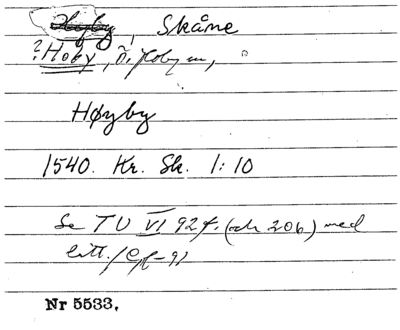 Skåne
?Hoby,
Høyby
1540. Kr. Sk. 1:10
Se TU VI 92 f. (och 206) med
litt. /
Nr 5533.